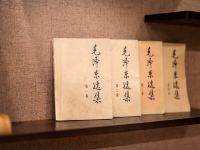 毛泽东选集
第一卷
毛泽东选集
第二卷
毛泽东选集
毛泽东选集